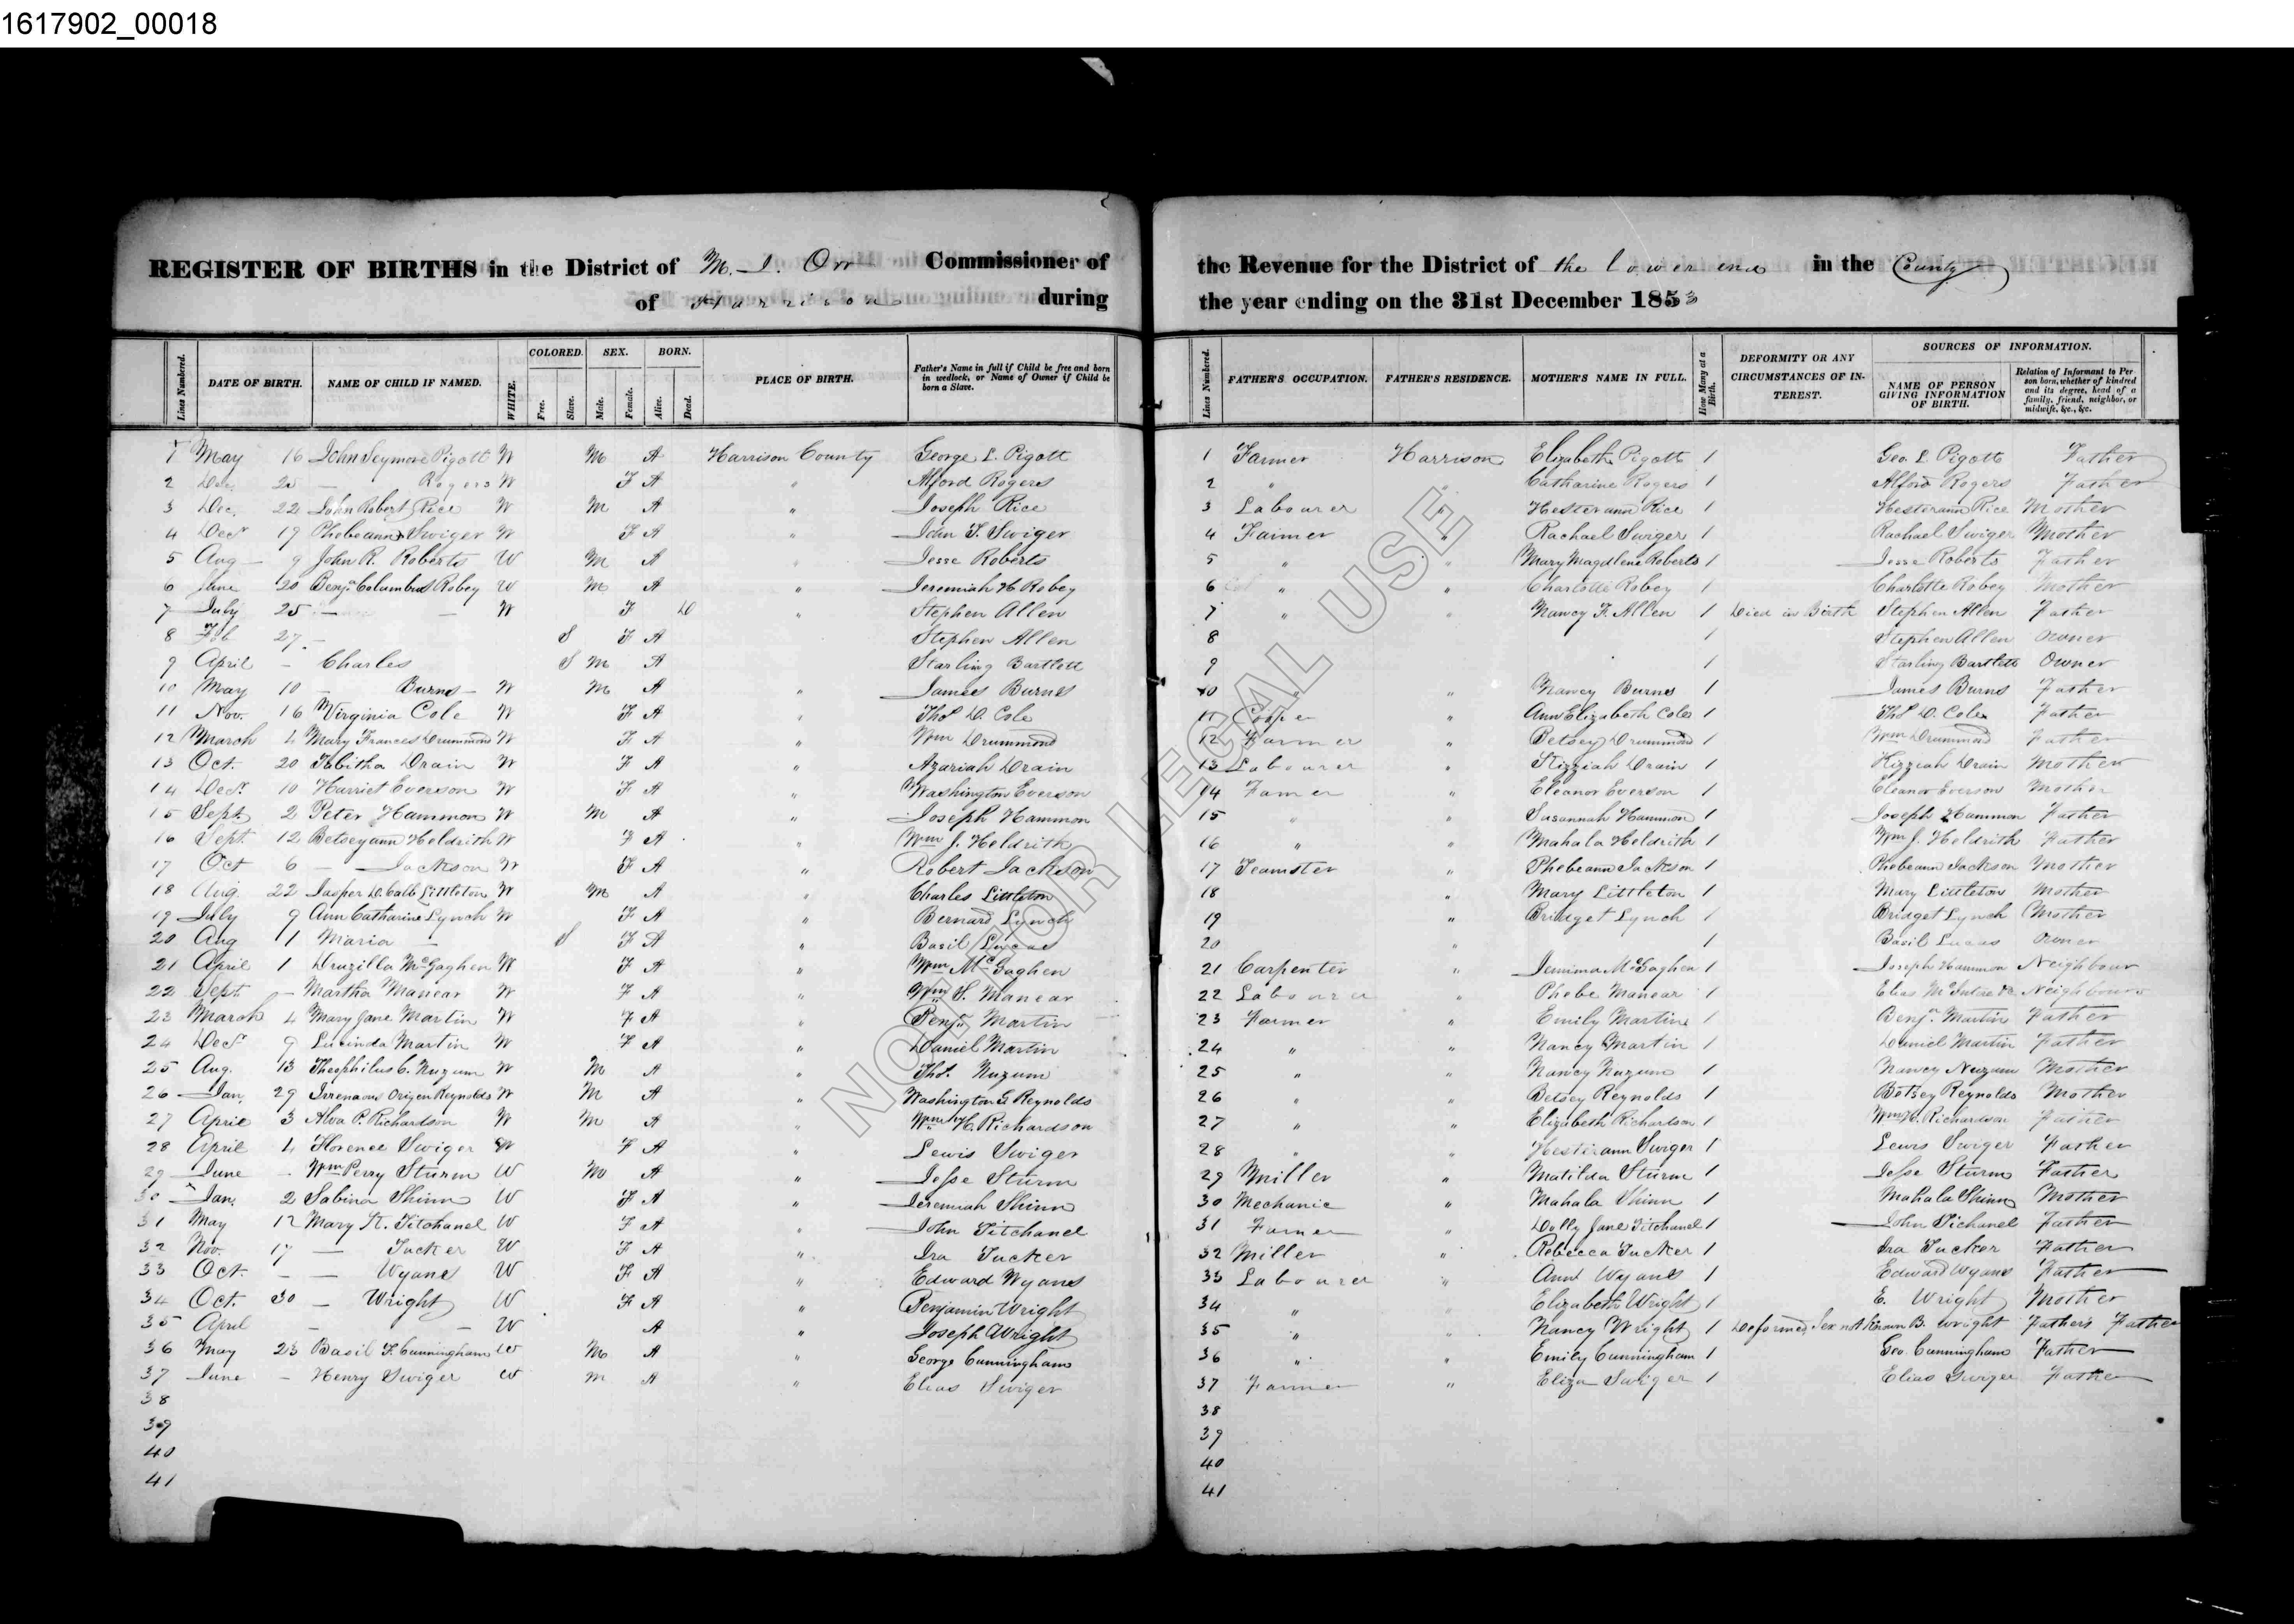 1617902_00018
REGISTER OF BIRTHS in the District of M. I. Orr Commissioner of
of Harrison during
the Revenue for the District of the lower end in the County
the year ending on the 31st December 1853
Lines Numbered. DATE OF BIRTH. NAME OF CHILD IF NAMED. WHITE. COLORED. Free. Slave. SEX. Male. Female. BORN. Alive. Dead. PLACE OF BIRTH. Father's Name in full if Child be free and born in wedlock, or Name of Owner if Child be born a Slave.
Lines Numbered. FATHER'S OCCUPATION. FATHER'S RESIDENCE. MOTHER'S NAME IN FULL. How Many at a Birth. DEFORMITY OR ANY CIRCUMSTANCES OF INTEREST. SOURCES OF INFORMATION. NAME OF PERSON GIVING INFORMATION OF BIRTH. Relation of Informant to Person born, whether of kindred and its degree, head of a family, friend, neighbor, or midwife, &c., &c.
1 May 16 John Seymore Pigott W M A Harrison County George L. Pigott
2 Dec. 25 — Rogers W F A " Alford Rogers
3 Dec. 22 John Robert Rice W M A " Joseph Rice
4 Decr 19 Phebeann Swiger W F A " John F. Swiger
5 Aug — 9 John R. Roberts W M A " Jesse Roberts
6 June 20 Benja Columbus Robey W M A " Jeremiah H Robey
7 July 25 — — W F D " Stephen Allen
8 Feb 27 — S F A Stephen Allen
9 April — Charles S M A Starling Bartlett
10 May 10 — Burns — W M A " James Burns
11 Nov. 16 Virginia Cole W F A " Thos D. Cole
12 March 4 Mary Frances Drummond W F A " Wm Drummond
13 Oct. 20 Tabitha Drain W F A " Azariah Drain
14 Decr. 10 Harriet Everson W F A " Washington Everson
15 Sept. 2 Peter Hammon W M A " Joseph Hammon
16 Sept. 12 Betseyann Heldrith W F A " Wm J. Heldrith
17 Oct 6 — Jackson W F A " Robert Jackson
18 Aug 22 Jasper D. Calb Littleton W M A " Charles Littleton
19 July 9 Ann Catharine Lynch W F A " Bernard Lynch
20 Aug 1 Maria — S F A " Basil Lucas
21 April 1 Druzilla McGaghen W F A " Wm McGaghen
22 Sept — Martha Manear W F A " Wm S. Manear
23 March 4 Mary Jane Martin W F A " Benjn Martin
24 Decr 9 Lucinda Martin W F A " Daniel Martin
25 Aug. 13 Theophilus C. Nuzum W M A " Thos. Nuzum
26 Jan. 29 Irrenaous Origen Reynolds W M A " Washington G Reynolds
27 April 3 Alva P. Richardson W M A " Wm H. Richardson
28 April 4 Florence Swiger W F A Lewis Swiger
29 June - Wm Perry Sturm W M A " Jesse Sturm
30 Jan. 2 Sabina Shinn W F A " Jeremiah Shinn
31 May 12 Mary K. Titchanel W F A " John Titchanel
32 Nov. 17 — Tucker W F A " Ira Tucker
33 Oct. — — Wyans W F A " Edward Wyans
34 Oct. 30 — Wright W F A " Benjamin Wright
35 April — — W A " Joseph Wright
36 May 23 Basil F. Cunningham W M A " George Cunningham
37 June — Henry Swiger W M A " Elias Swiger
38
39
40
41
1 Farmer Harrison Elizabeth Pigott 1 Geo. L. Pigott Father
2 " " Catharine Rogers 1 Alford Rogers Father
3 Labourer " Hester ann Rice 1 Hesterann Rice Mother
4 Farmer Rachael Swiger 1 Rachael Swiger Mother
5 " " Mary Magdlene Roberts 1 Jesse Roberts Father
6 " " Charlotte Robey 1 Charlotte Robey Mother
7 " " Nancy F. Allen 1 Died in Birth Stephen Allen Father
8 1 Stephen Allen Owner
9 1 Starling Bartlett Owner
10 " " Nancy Burns 1 James Burns Father
11 Cooper " Ann Elizabeth Cole 1 Thos D. Cole Father
12 Farmer " Betsey Drummond 1 Wm Drummond Father
13 Labourer " Kizziah Drain 1 Kizziah Drain Mother
14 Farmer " Eleanor Everson 1 Eleanor Everson Mother
15 " " Susannah Hammon 1 Joseph Hammon Father
16 " " Mahala Heldrith 1 Wm J. Heldrith Father
17 Teamster " Phebeann Jackson 1 Phebeann Jackson Mother
18 " Mary Littleton 1 Mary Littleton Mother
19 " Bridget Lynch 1 Bridget Lynch Mother
20 " 1 Basil Lucas Owner
21 Carpenter " Jemima McGaghen 1 Joseph Hammon Neighbour
22 Labourer " Phebe Manear 1 Elias McIntire Neighbour
23 Farmer " Emily Martin 1 Benjn. Martin Father
24 " " Nancy Martin 1 Daniel Martin Father
25 " " Nancy Nuzum 1 Nancy Nuzum Mother
26 " " Betsey Reynolds 1 Betsey Reynolds Mother
27 " " Elizabeth Richardson 1 Wm H. Richardson Father
28 " " Hesterann Swiger 1 Lewis Swiger Father
29 Miller " Matilda Sturm 1 Jesse Sturm Father
30 Mechanic " Mahala Shinn 1 Mahala Shinn Mother
31 Farmer " Dolly Jane Titchanel 1 John Tichanel Father
32 Miller " Rebecca Tucker 1 Ira Tucker Father
33 Labourer " Ann Wyans 1 Edward Wyans Father
34 " " Elizabeth Wright 1 E. Wright Mother
35 " " Nancy Wright 1 Deformed, Sex not Known B. Wright Father's Father
36 " " Emily Cunningham 1 Geo. Cunningham Father
37 Farmer " Eliza Swiger 1 Elias Swiger Father
38
39
40
41
NOT FOR LEGAL USE